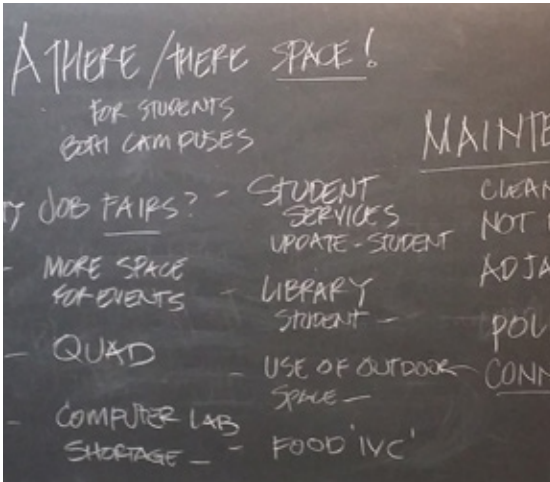 A THERE / THERE SPACE!
FOR STUDENTS
BOTH CAMPUSES
JOB FAIRS?
- MORE SPACE
FOR EVENTS
- QUAD
- COMPUTER LAB
SHORTAGE -
- STUDENT
SERVICES
UPDATE - STUDENT
- LIBRARY
STUDENT -
- USE OF OUTDOOR
SPACE -
- FOOD 'IVC'
MAINTE
CLEAN
NOT
ADJA
POL
CONN